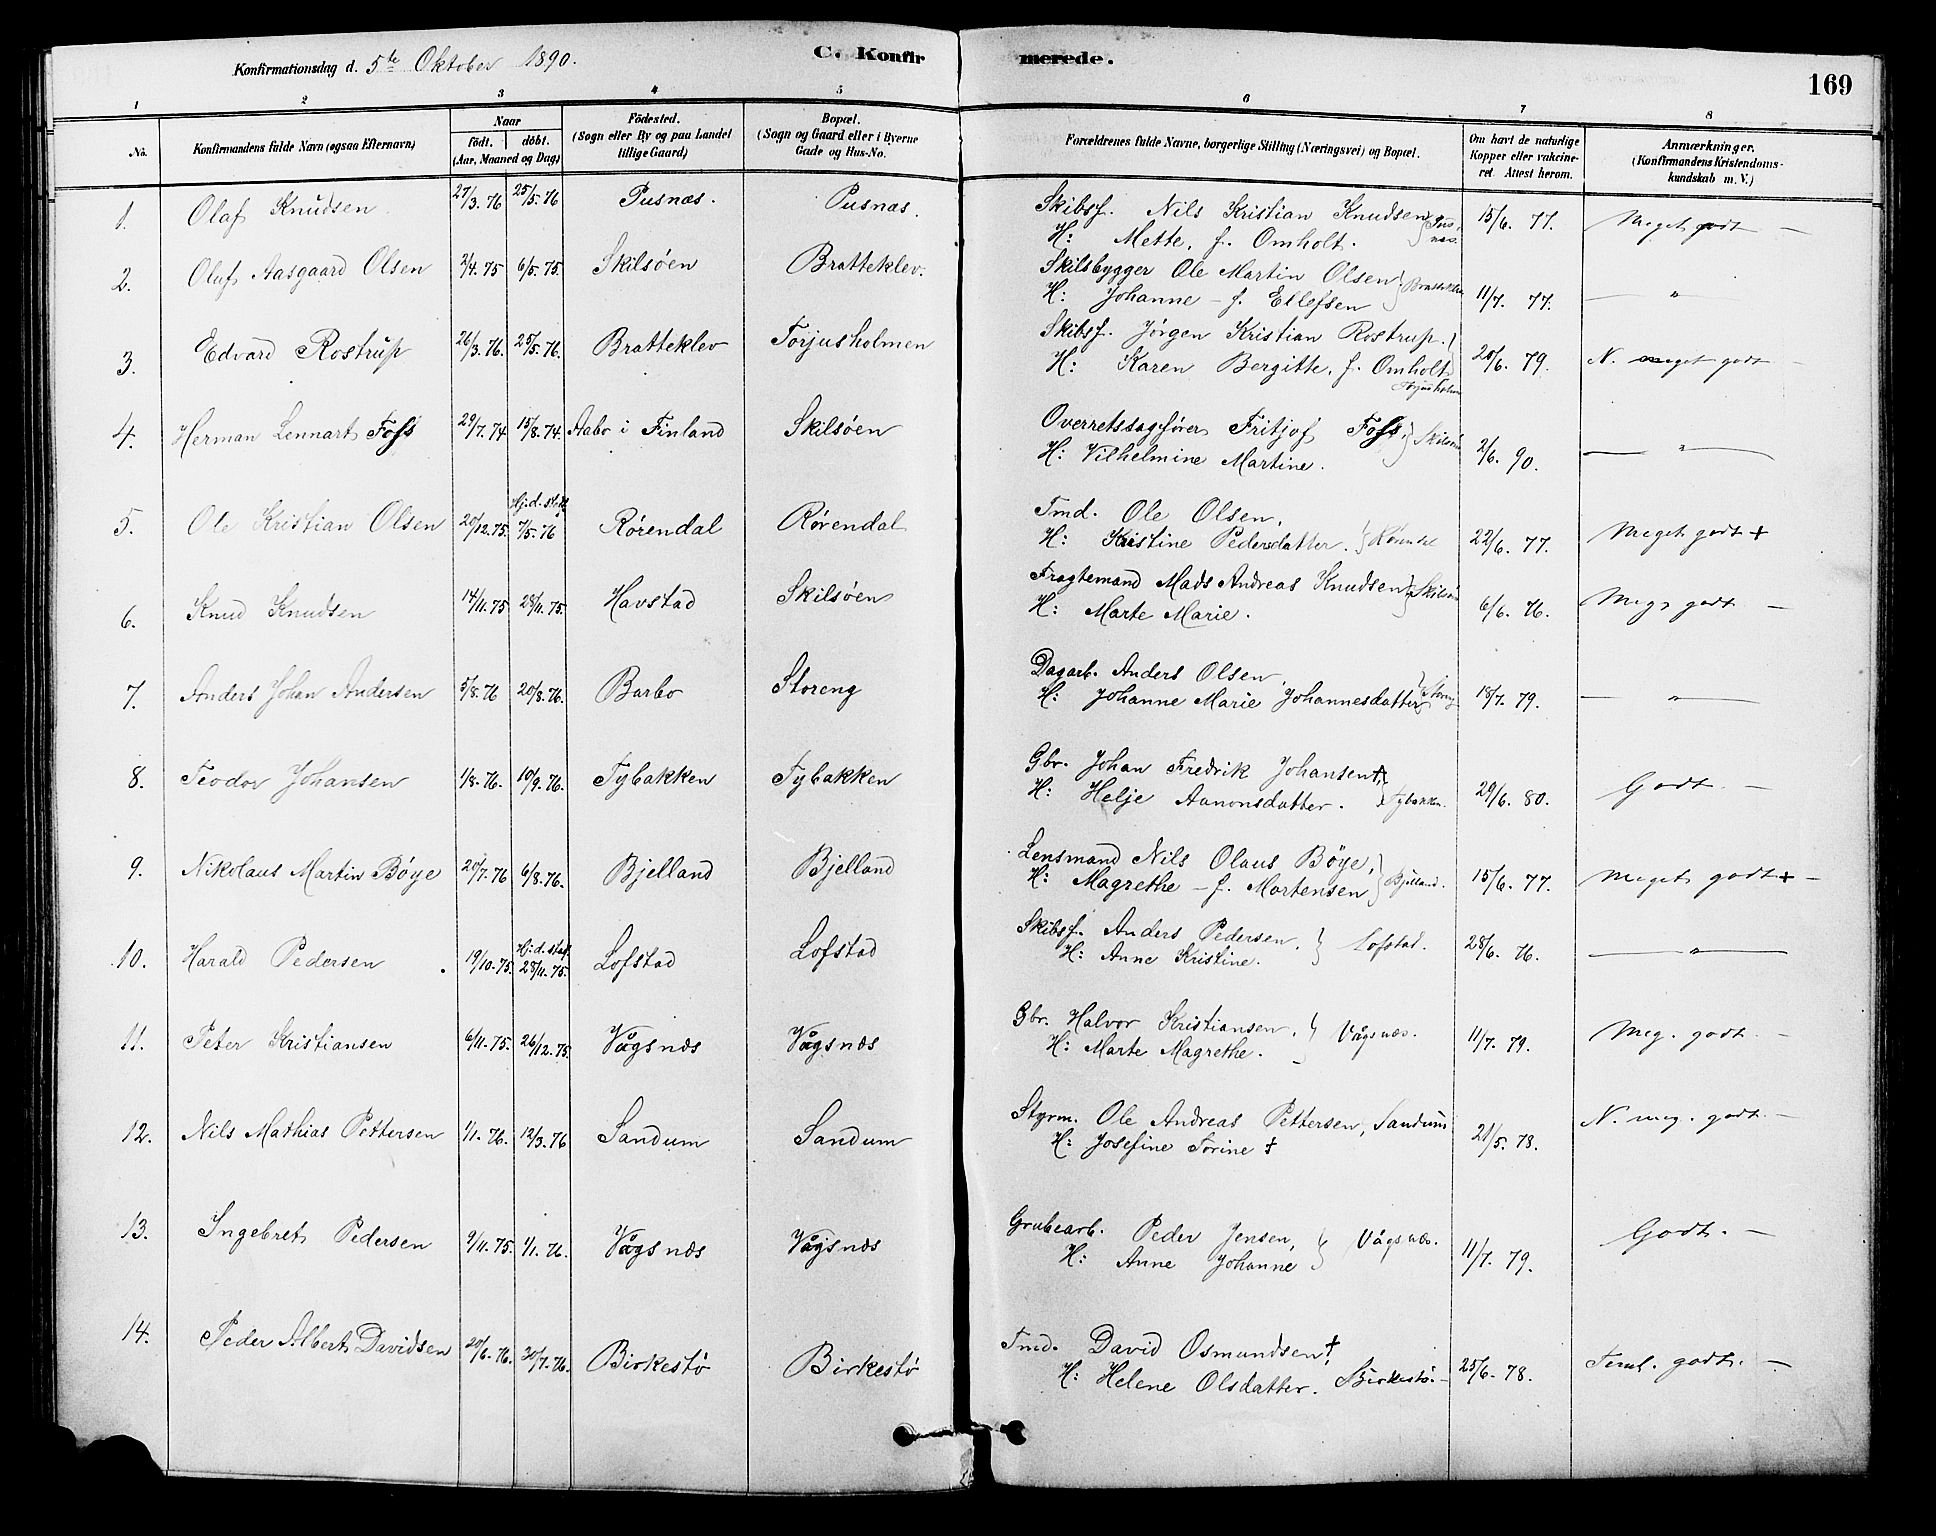 Konfirmationsdag d. 5te Oktober 1890.
C. Konfirmerede.
169
1 2 3 4 5 6 7 8
No. | Konfirmandens fulde Navn (ogsaa Efternavn) | Naar födt. döbt. (Aar, Maaned og Dag) | Födested. (Sogn eller By og paa Landet tillige Gaard) | Bopæl. (Sogn og Gaard eller i Byerne Gade og Hus-No. | Forældrenes fulde Navne, borgerlige Stilling (Næringsvei) og Bopæl. | Om havt de naturlige Kopper eller vakcineret. Attest herom. | Anmærkninger. (Konfirmandens Kristendomskundskab m. V.)
1. Olaf Knudsen. 27/3. 76 25/5. 76 Pusnæs. Pusnæs. Skibsf. Nils Kristian Knudsen } Pusnæs. 15/6. 77. Meget godt —
H: Mette, f. Omholt.
2. Oluf Aasgaard Olsen 2/4. 75 6/5. 75. Skilsöen Bratteklev. Skibsbygger Ole Martin Olsen } Bratteklev 11/7. 77. — " —
H: Johanne — f. Ellefsen
3. Edvard Rostrup 26/3. 76. 25/5. 76. Bratteklev Torjusholmen Skibsf. Jörgen Kristian Rostrup. } 20/6. 79. N. meget godt —
H: Karen Bergitte, f. Omholt Torjusholm
4. Herman Lennart Foss 29/7. 74 15/8. 74. Aabo i Finland Skilsöen Overretssagfører Fritjof Foss, } Skilsöen 2/6. 90. — " —
H: Vilhelmine Martine.
5. Ole Kristian Olsen 20/12. 75. Hj.d. stad. 7/5. 76 Rörendal Rörendal Tmd. Ole Olsen,
H: Kristine Pedersdatter. } Rörendal 22/6. 77. Meget godt +
6. Knud Knudsen 14/11. 75 28/11. 75. Havstad Skilsöen Fragtemand Mads Andreas Knudsen } Skilsöen 6/6. 76. Meg. godt —
H: Marte Marie.
7. Anders Johan Andersen 5/8. 76 20/8. 76. Barbo Storeng Dagarb. Anders Olsen,
H: Johanne Marie Johannesdatter } Storeng 18/7. 79. — " —
8. Teodor Johansen 1/8. 76. 10/9. 76. Tybakken Tybakken Gbr. Johan Fredrik Johansen †,
H: Helje Aanonsdatter. } Tybakken. 29/6. 80. Godt. —
9. Nikolaus Martin Böye 20/7. 76 6/8. 76. Bjelland Bjelland Lensmand Nils Olaus Böye,
H: Magrethe — f. Mortensen } Bjelland. 15/6. 77. Meget godt + —
10. Harald Pedersen 19/10. 75. Hj.d. stad. 28/11. 75. Lofstad Lofstad Skibsf. Anders Pedersen, } Lofstad. 28/6. 76. — " —
H: Anne Kristine.
11. Peter Kristiansen 6/11. 75. 26/12. 75. Vågsnæs Vågsnæs Gbr. Halvor Kristiansen, } Vågsnæs. 11/7. 79. Meg. godt. —
H: Marte Magrethe.
12. Nils Mathias Pettersen 1/1. 76. 12/3. 76 Sandum Sandum Styrm. Ole Andreas Pettersen, Sandum 21/5. 78. N. meg. godt. —
H: Josefine Torine †
13. Ingebret Pedersen 9/11. 75. 1/1. 76. Vågsnæs Vågsnæs Grubearb. Peder Jensen, } Vågsnæs. 11/7. 79. Godt. —
H: Anne Johanne
14. Peder Albert Davidsen 20/6. 76. 30/7. 76. Birkestö Birkestö Tmd. David Osmundsen †,
H: Helene Olsdatter. Birkestö. — 25/6. 78. Teml. godt. —